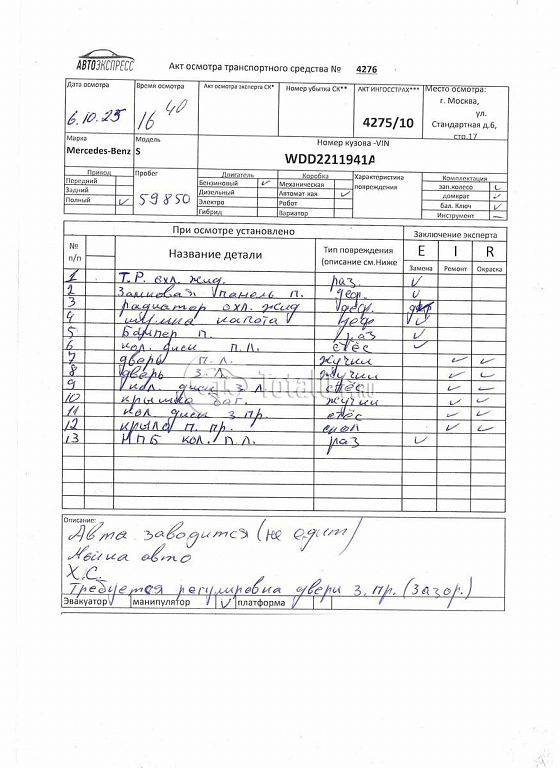 АВТОЭКСПРЕСС
Акт осмотра транспортного средства № 4276
Дата осмотра Время осмотра Акт осмотра эксперта СК* Номер убытка СК** АКТ ИНГОССТРАХ*** Место осмотра:
6.10.25 16 40 4275/10 г. Москва, ул. Стандартная д.6, стр.17
Марка Модель Номер кузова -VIN
Mercedes-Benz S WDD2211941A
Привод Пробег Двигатель Коробка Характеристика повреждения Комплектация
Передний 59850 Бензиновый ✓ Механическая зап.колесо
Задний Дизельный Автомат-кая ✓ домкрат ✓
Полный ✓ Электро Робот бал. Ключ ✓
Гибрид Вариатор Инструмент —
При осмотре установлено Заключение эксперта
№ п/п Название детали Тип повреждения (описание см.Ниже E I R
Замена Ремонт Окраска
1 Т.Р. охл. жид. раз. ✓
2 Замковая панель п. деф. ✓
3 радиатор охл. жид деф.
4 капота деф ✓
5 Бампер п. раз ✓
6 кол. диск п.л. стёс ✓
7 дверь п.л. жучки ✓ ✓
8 дверь з.л. жучки ✓ ✓
9 кол. диск з.л. стёс ✓ ✓
10 крышка баг. жучки ✓ ✓
11 кол. диск з.пр. стёс ✓ ✓
12 крыло п. пр. скол ✓ ✓
13 НПБ кол. п.л. раз ✓
Total01.ru
Описание:
Авто заводится (не едит)
Мойка авто
Х.С.
Требуется регулировка двери з.пр. (зазор.)
Эвакуатор манипулятор ✓ платформа